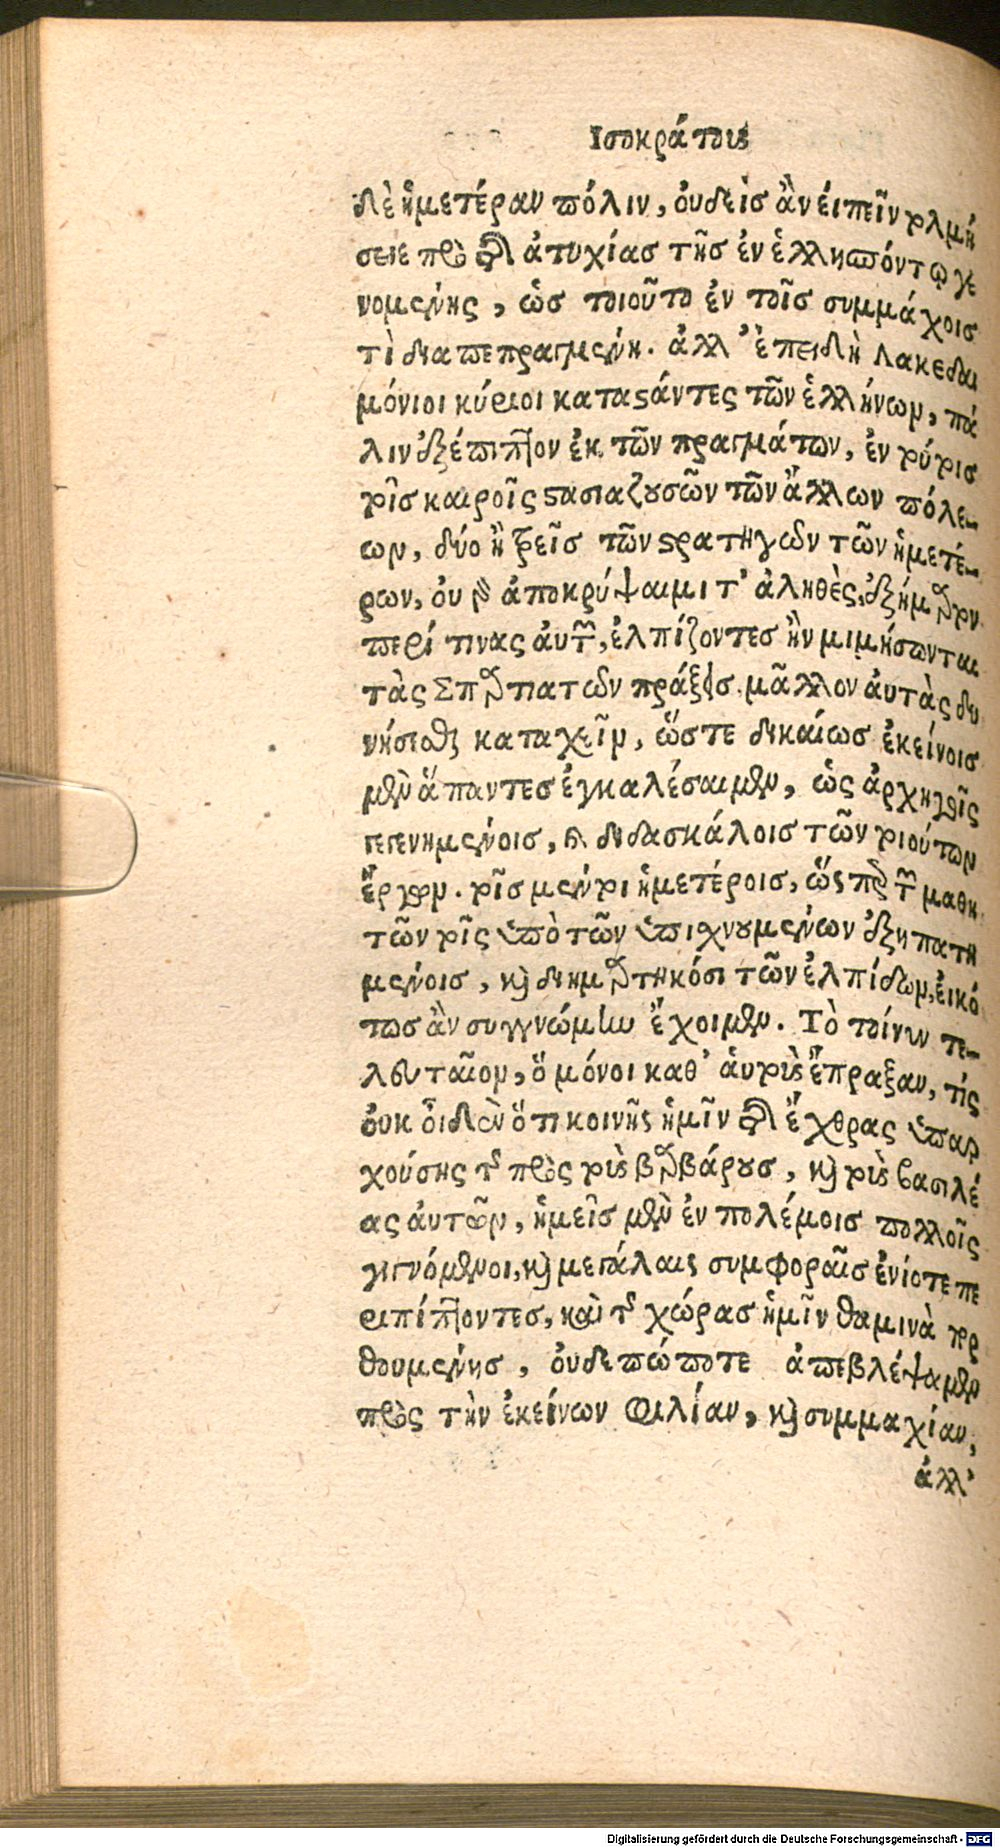 Ἰσοκράτους
δὲ ἡμετέραν πόλιν, οὐδεὶς ἂν εἰπεῖν τολμή
σειε πρὸ τῆς ἀτυχίας τῆς ἐν ἑλλησπόντῳ γε
νομένης, ὡς τοιοῦτο ἐν τοῖς συμμάχοις
τὶ διαπεπραγμένη. ἀλλ' ἐπειδὴ Λακεδαι
μόνιοι κύριοι καταστάντες τῶν ἑλλήνων, πά
λιν ἐξέπιπτον ἐκ τῶν πραγμάτων, ἐν τούτοις
τοῖς καιροῖς στασιαζουσῶν τῶν ἄλλων πόλε-
ων, δύο ἢ τρεῖς τῶν στρατηγῶν τῶν ἡμετέ-
ρων, οὐ γὰρ ἀποκρύψαιμι τ' ἀληθὲς, ἐξήμαρτον
περί τινας αὐτῶν, ἐλπίζοντες ἢν μιμήσωνται
τὰς Σπαρτιατῶν πράξεις, μᾶλλον αὐτὰς δυ
νήσεσθαι καταχεῖν, ὥστε δικαίως ἐκείνοις
μὲν ἅπαντες ἐγκαλέσαιμεν, ὡς ἀρχηγοῖς
γεγενημένοις, καὶ διδασκάλοις τῶν τοιούτων
ἔργων. τοῖς μέντοι ἡμετέροις, ὥσπερ τῶν μαθη
τῶν τοῖς ὑπὸ τῶν ὑπισχνουμένων ἐξηπατη
μένοις, καὶ διημαρτηκόσι τῶν ἐλπίδων, εἰκό
τως ἂν συγγνώμην ἔχοιμεν. Τὸ τοίνυν τε-
λευταῖον, ὃ μόνοι καθ' αὑτοὺς ἔπραξαν, τίς
οὐκ οἶδεν ὅτι κοινῆς ἡμῖν τῆς ἔχθρας ὑπαρ
χούσης τῆς πρὸς τοὺς βαρβάρους, καὶ τοὺς βασιλέ
ας αὐτῶν, ἡμεῖς μὲν ἐν πολέμοις πολλοῖς
γιγνόμενοι, καὶ μεγάλαις συμφοραῖς ἐνίοτε πε
ριπίπτοντες, καὶ τῆς χώρας ἡμῖν θαμινὰ πορ
θουμένης, οὐδεπώποτε ἀπεβλέψαμεν
πρὸς τὴν ἐκείνων φιλίαν, καὶ συμμαχίαν,
ἀλλ'
Digitalisierung gefördert durch die Deutsche Forschungsgemeinschaft - DFG